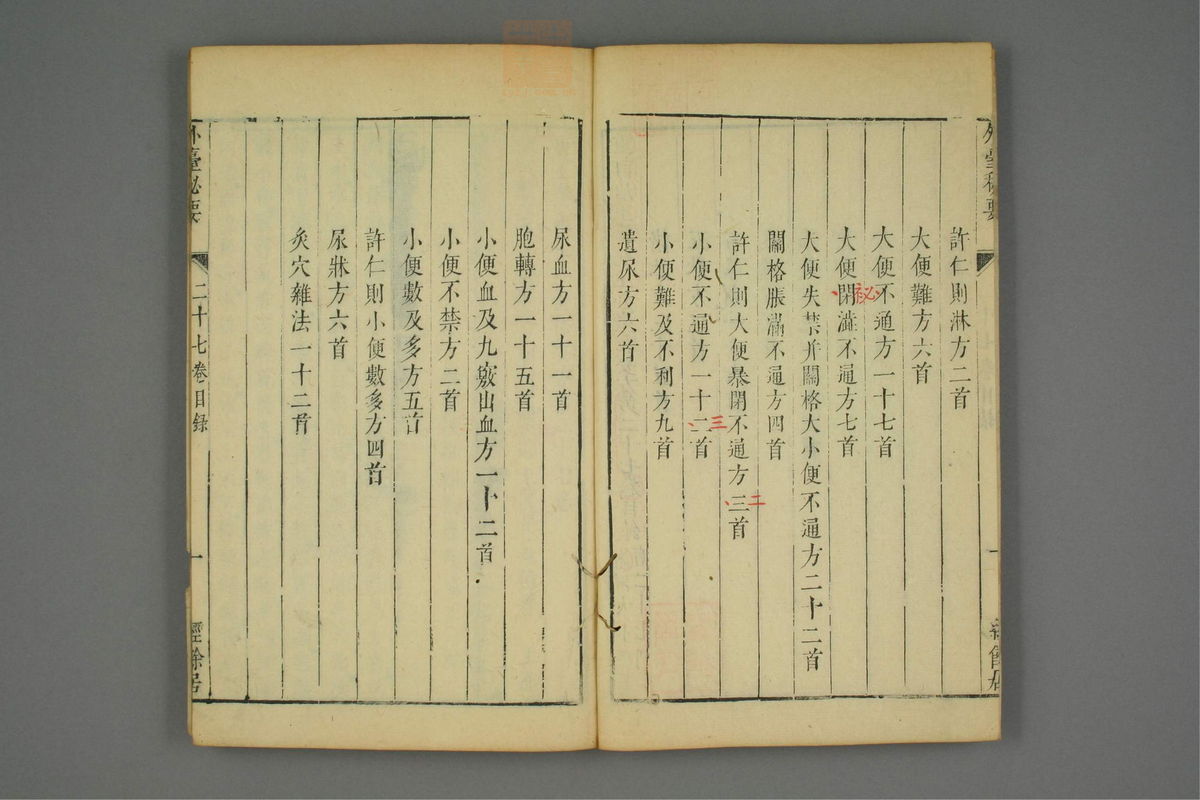 外臺秘要
許仁則淋方二首
大便難方六首
大便不通方一十七首
大便閉澁不通方七首
祕
大便失禁并關格大小便不通方二十二首
關格脹滿不通方四首
許仁則大便暴閉不通方三首
二
小便不通方一十二首
三
小便難及不利方九首
遺尿方六首
尿血方一十一首
胞轉方一十五首
小便血及九竅出血方一十二首
小便不禁方二首
小便數及多方五首
許仁則小便數多方四首
尿牀方六首
灸穴雜法一十二首
外臺祕要
二十七卷目録
一
經餘居